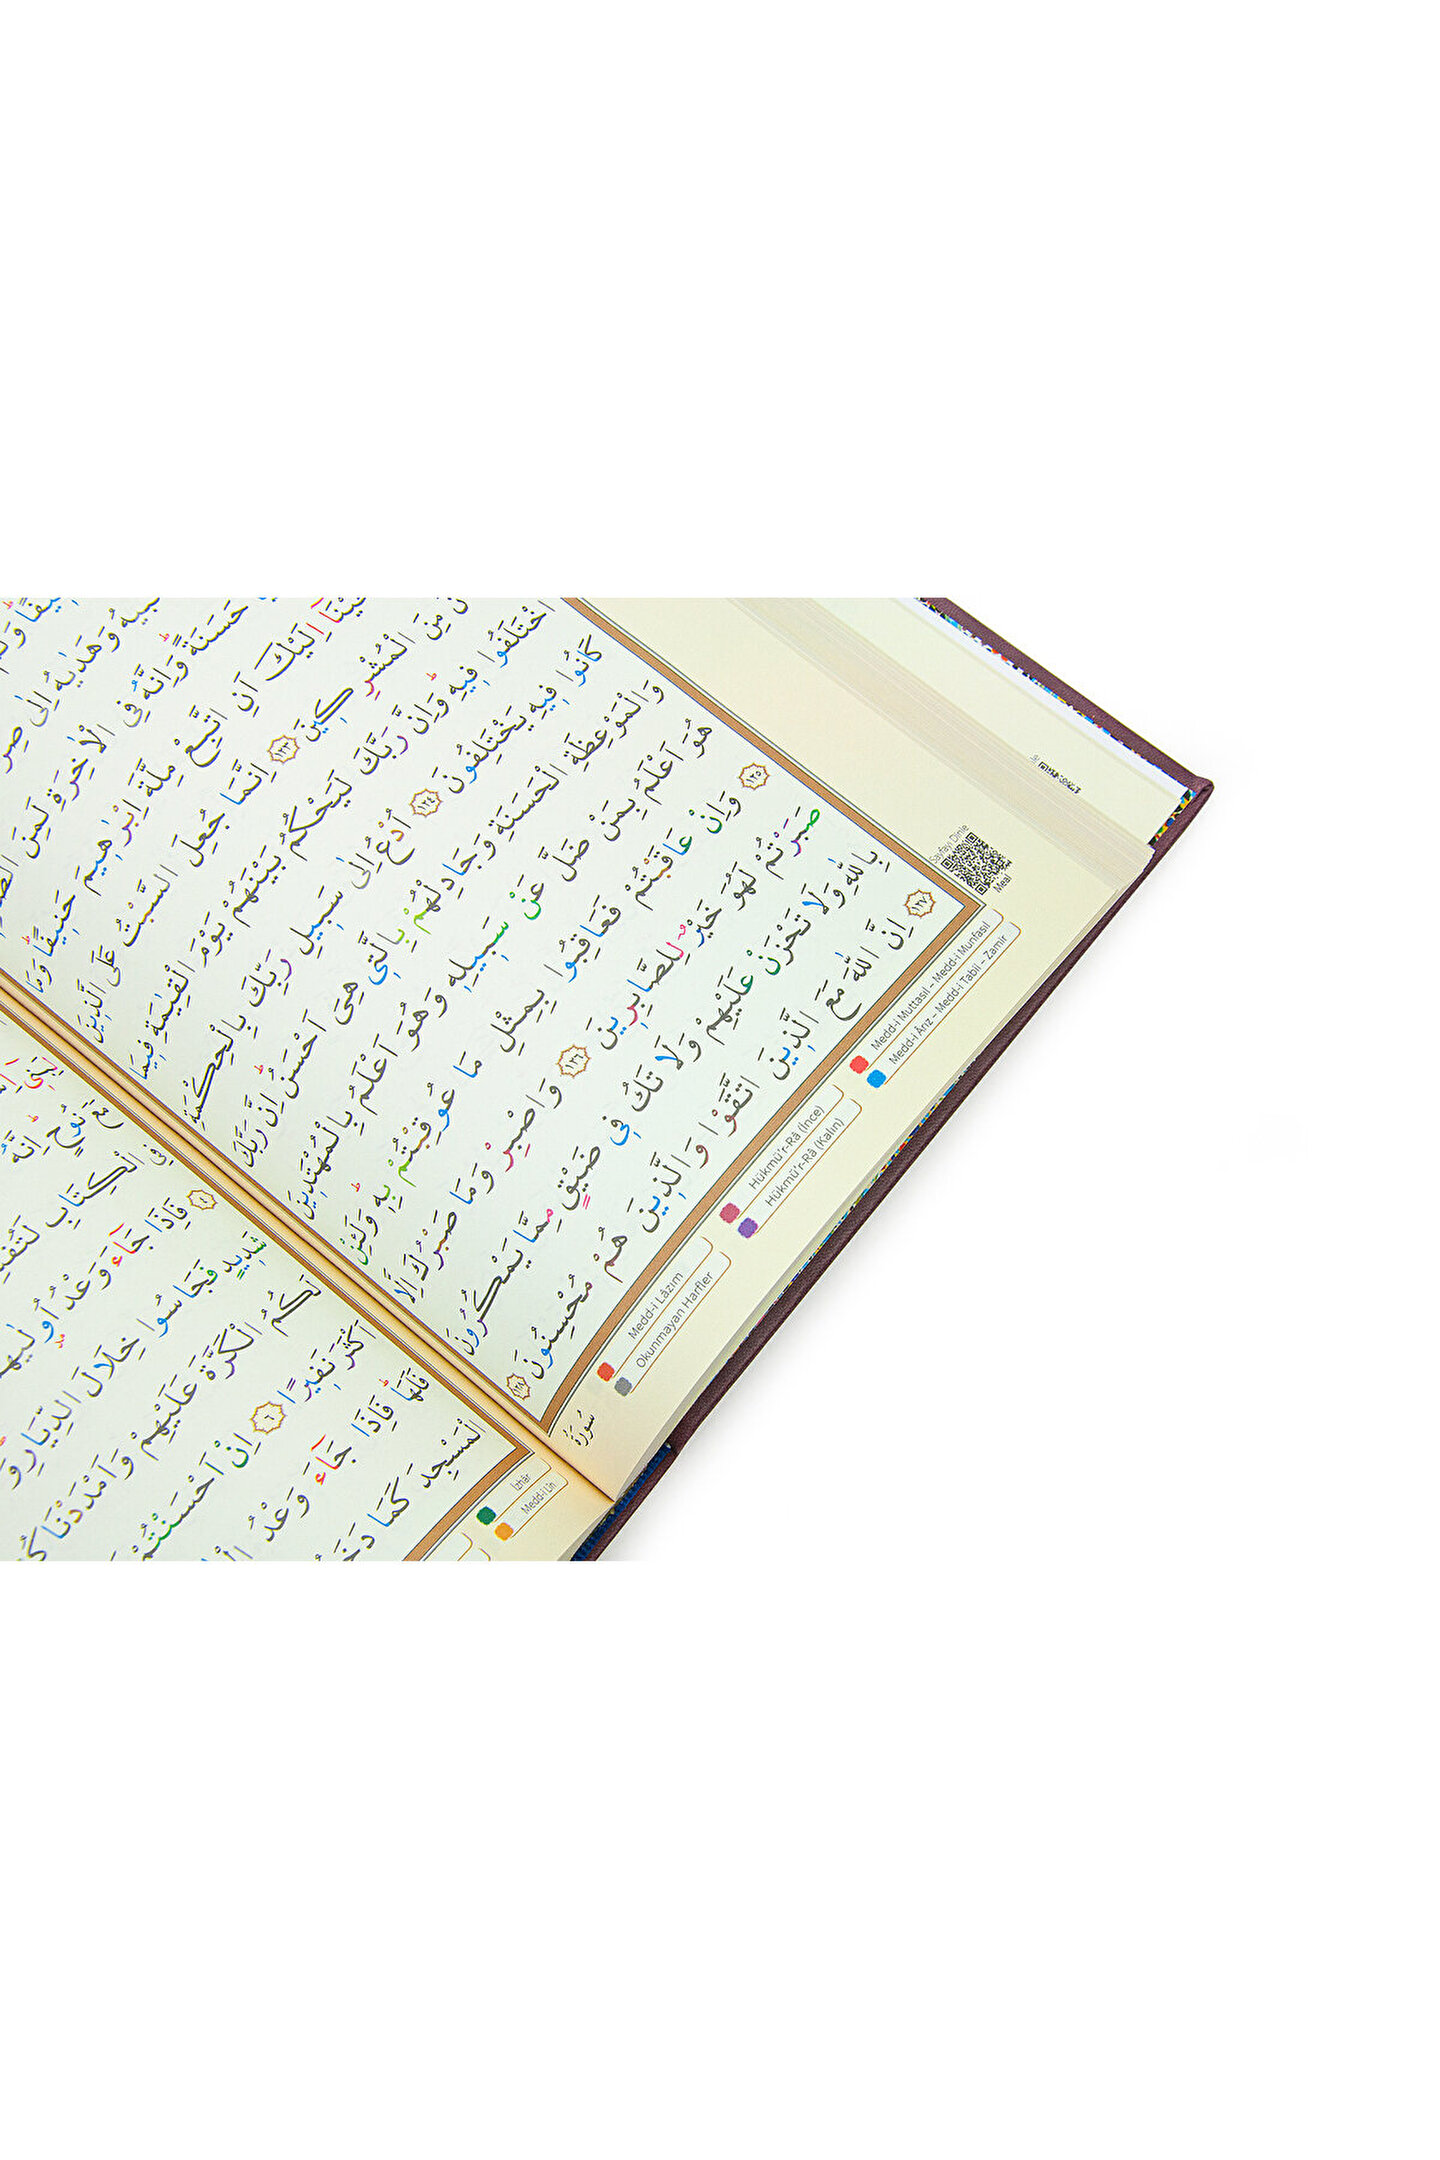 حَسَنَةً وَاِنَّهُ فِى الْاٰخِرَةِ لَمِنَ
اِلَيْكَ اَنِ اتَّبِعْ مِلَّةَ اِبْرٰهِيمَ حَنِيفًا وَمَا
مِنَ الْمُشْرِكِينَ ﴿١٢٣﴾ اِنَّمَا جُعِلَ السَّبْتُ عَلَى الَّذِينَ
اخْتَلَفُوا فِيهِ وَاِنَّ رَبَّكَ لَيَحْكُمُ بَيْنَهُمْ يَوْمَ الْقِيٰمَةِ فِيمَا
كَانُوا فِيهِ يَخْتَلِفُونَ ﴿١٢٤﴾ اُدْعُ اِلٰى سَبِيلِ رَبِّكَ بِالْحِكْمَةِ
وَالْمَوْعِظَةِ الْحَسَنَةِ وَجَادِلْهُمْ بِالَّتِى هِىَ اَحْسَنُ اِنَّ رَبَّكَ
هُوَ اَعْلَمُ بِمَنْ ضَلَّ عَنْ سَبِيلِهِ وَهُوَ اَعْلَمُ بِالْمُهْتَدِينَ
﴿١٢٥﴾ وَاِنْ عَاقَبْتُمْ فَعَاقِبُوا بِمِثْلِ مَا عُوقِبْتُمْ بِهِ وَلَئِنْ
صَبَرْتُمْ لَهُوَ خَيْرٌ لِلصَّابِرِينَ ﴿١٢٦﴾ وَاصْبِرْ وَمَا صَبْرُكَ اِلَّا
بِاللّٰهِ وَلَا تَحْزَنْ عَلَيْهِمْ وَلَا تَكُ فِى ضَيْقٍ مِمَّا يَمْكُرُونَ
﴿١٢٧﴾ اِنَّ اللّٰهَ مَعَ الَّذِينَ اتَّقَوْا وَالَّذِينَ هُمْ مُحْسِنُونَ ﴿١٢٨﴾
سُورَةُ
Sayfayı Dinle
Meal
Medd-i Muttasıl – Medd-i Munfasıl
Medd-i Arız – Medd-i Tabii – Zamir
Hükmü'r-Râ (İnce)
Hükmü'r-Râ (Kalın)
Medd-i Lâzım
Okunmayan Harfler
فِى الْكِتَابِ
﴿٥﴾ فَاِذَا جَآءَ وَعْدُ
شَدِيدٍ فَجَاسُوا خِلَالَ الدِّيَارِ
لَكُمُ الْكَرَّةَ عَلَيْهِمْ وَاَمْدَدْنَا
اَكْثَرَ نَفِيرًا ﴿٦﴾ اِنْ اَحْسَنْتُمْ
فَلَهَا فَاِذَا جَآءَ وَعْدُ
الْمَسْجِدَ كَمَا
İzhâr
Medd-i Lîn